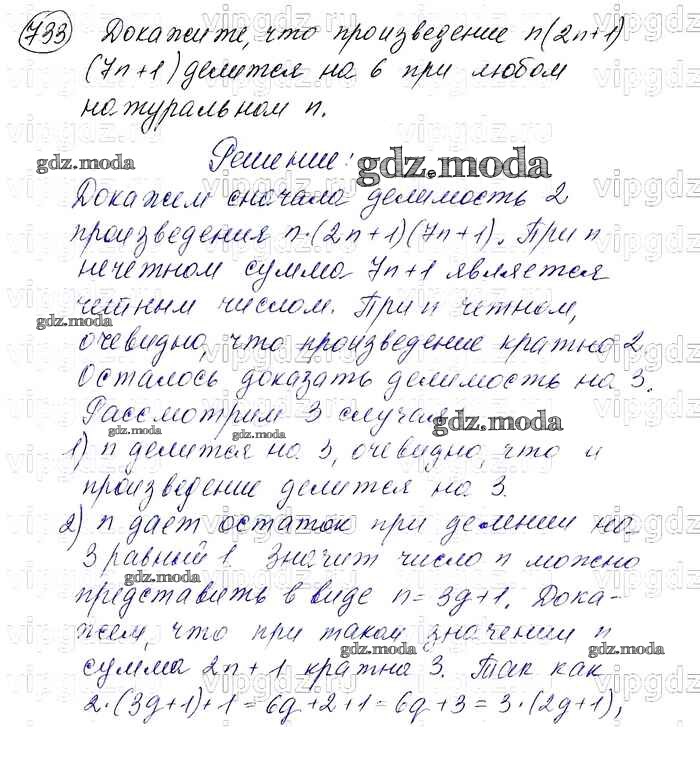 733 Докажите, что произведение n(2n+1)
(7n+1) делится на 6 при любом
натуральном n.
Решение:
gdz.moda gdz.moda
Докажем сначала делимость 2
произведения n·(2n+1)(7n+1). При n
нечетном сумма 7n+1 является
четным числом. При n четном,
gdz.moda
очевидно, что произведение кратно 2.
Осталось доказать делимость на 3.
Рассмотрим 3 случая
gdz.moda
gdz.moda gdz.moda
1) n делится на 3, очевидно, что и
произведение делится на 3.
2) n дает остаток при делении на
3 равный 1. Значит число n можно
gdz.moda
представить в виде n=3q+1. Дока-
жем, что при таком значении n
gdz.moda
сумма 2n+1 кратна 3. Так как
2·(3q+1)+1=6q+2+1=6q+3=3·(2q+1),